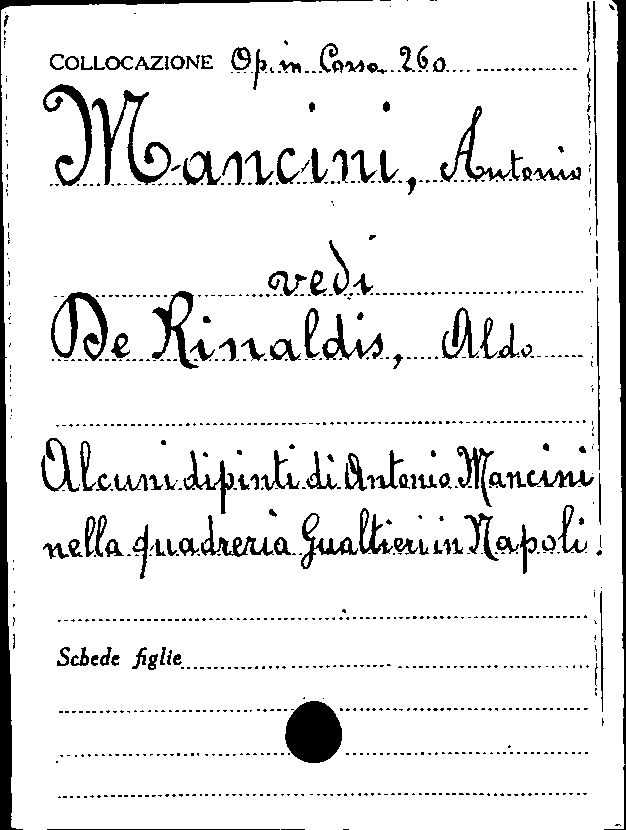 COLLOCAZIONE Op. in Corso 260
Mancini, Antonio
vedi
De Rinaldis, Aldo
Alcuni dipinti di Antonio Mancini
nella quadreria Gualtieri in Napoli.
Schede figlie